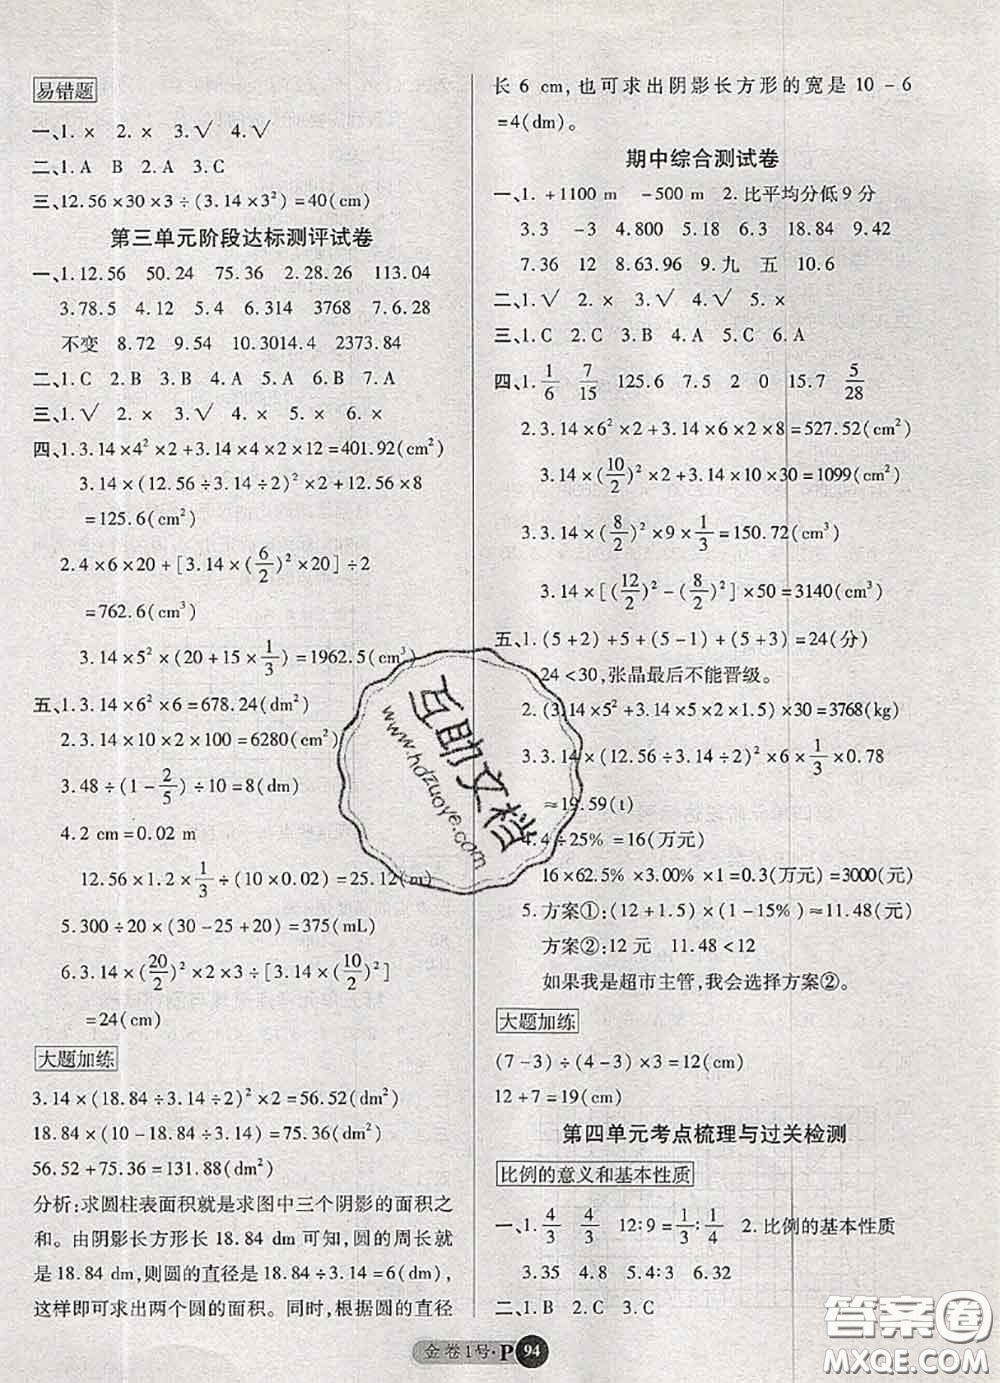 易错题
一、1. × 2. × 3. √ 4. √
二、1. A B 2. A 3. C
三、12.56×30×3÷(3.14×3²)=40(cm)
第三单元阶段达标测评试卷
一、1. 12.56 50.24 75.36 2. 28.26 113.04
3. 78.5 4. 12 5. 4 6. 314 3768 7. 6.28
不变 8. 72 9. 54 10. 3014.4 2373.84
二、1. C 2. B 3. A 4. C 5. A 6. B 7. A
三、1. √ 2. × 3. √ 4. √ 5. × 6. ×
四、1. 3.14×4²×2+3.14×4×2×12=401.92(cm²)
3.14×(12.56÷3.14÷2)²×2+12.56×8
=125.6(cm²)
2. 4×6×20+[3.14×(6/2)²×20]÷2
=762.6(cm³)
3.14×5²×(20+15×1/3)=1962.5(cm³)
五、1. 3.14×6²×6=678.24(dm²)
2. 3.14×10×2×100=6280(cm²)
3. 48÷(1-2/5)÷10=8(dm²)
4. 2 cm=0.02 m
12.56×1.2×1/3÷(10×0.02)=25.12(m)
5. 300÷20×(30-25+20)=375(mL)
6. 3.14×(20/2)²×2×3÷[3.14×(10/2)²]
=24(cm)
大题加练
3.14×(18.84÷3.14÷2)²×2=56.52(dm²)
18.84×(18.84÷3.14)=75.36(dm²)
56.52+75.36=131.88(dm²)
分析:求圆柱表面积就是求图中三个阴影的面积之
和。由阴影长方形长 18.84 dm 可知,圆的周长就
是 18.84 dm,则圆的直径是 18.84÷3.14=6(dm),
这样即可求出两个圆的面积。同时,根据圆的直径
长 6 cm,也可求出阴影长方形的宽是 10-6
=4(dm)。
期中综合测试卷
一、1. +1100 m -500 m 2. 比平均分低 9 分
3. 3 -3 4. 75 5. 200 18.84 6. 9.42
7. 36 12 8. 63.96 9. 九 五 10. 6
二、1. √ 2. × 3. √ 4. √ 5. ×
三、1. C 2. C 3. B 4. A 5. C 6. A
四、1. 1/6 7/15 125.6 7.5 2 0 15.7 5/28
2. 3.14×6²×2+3.14×6×2×8=527.52(cm²)
3.14×(10/2)²×2+3.14×10×30=1099(cm²)
3. 3.14×(8/2)²×9×1/3=150.72(cm³)
3.14×[(12/2)²-(8/2)²]×50=3140(cm³)
五、1. (5+2)+5+(5-1)+(5+3)=24(分)
24<30,张晶最后不能晋级。
2. (3.14×5²+3.14×5×2×1.5)×30=3768(kg)
3. 3.14×(12.56÷3.14÷2)²×6×1/3×0.78
≈19.59(t)
4. 4÷25%=16(万元)
16×62.5%×3.00%×1=0.3(万元)=3000(元)
5. 方案①:(12+1.5)×(1-15%)≈11.48(元)
方案②:12 元 11.48<12
如果我是超市主管,我会选择方案②。
大题加练
(7-3)÷(4-3)×3=12(cm)
12+7=19(cm)
第四单元考点梳理与过关检测
比例的意义和基本性质
一、1. 4/3 4/3 12∶9=1/3∶1/4 2. 比例的基本性质
3. 35 4. 8 5. 4 6. 32
二、1. B 2. C 3. C
互助文档
www.hdzuoye.com
金卷1号·P 94
答案圈
MXQE.COM